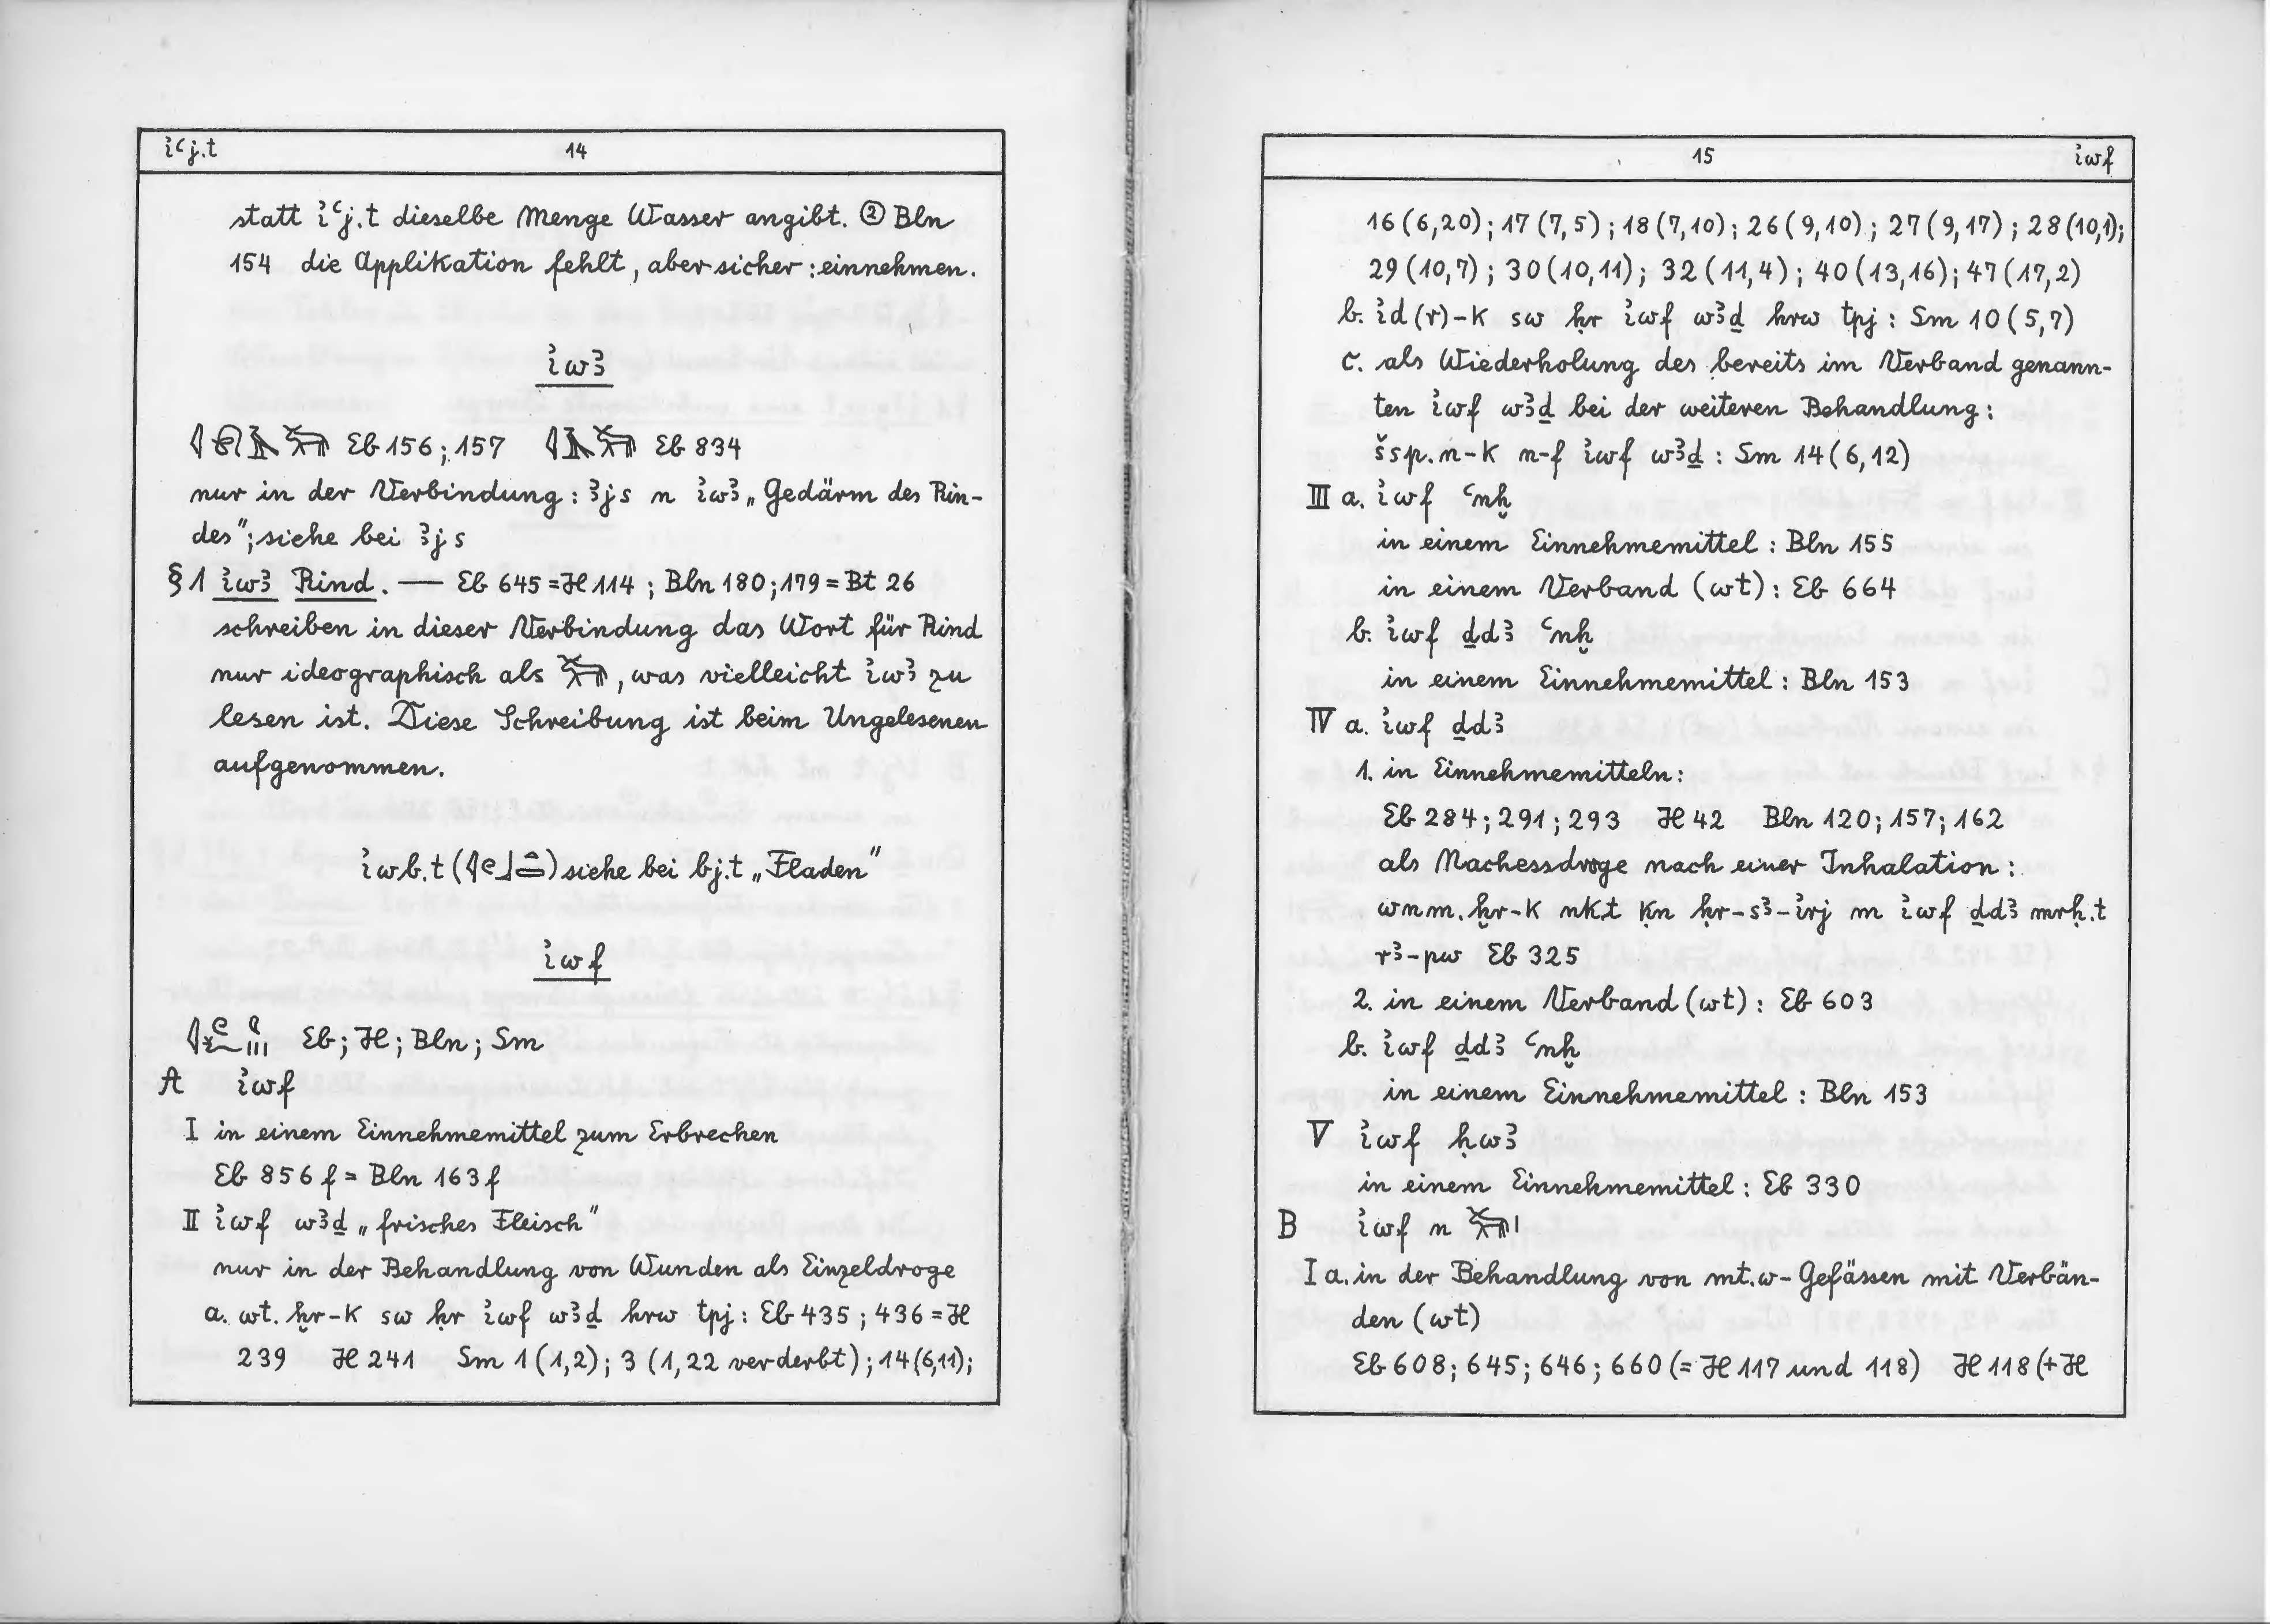 ἰꜥj.t 14
statt ἰꜥj.t dieselbe Menge Wasser angibt. ② Bln
154 die Applikation fehlt, aber sicher: einnehmen.
ἰwꜣ
𓇋𓍯𓄿𓃒 Eb 156; 157 𓇋𓄿𓃒 Eb 834
nur in der Verbindung: ꜣjs n ἰwꜣ „Gedärm des Rin-
des"; siehe bei ꜣjs
§1 ἰwꜣ Rind. — Eb 645 = H 114; Bln 180; 179 = Bt 26
schreiben in dieser Verbindung das Wort für Rind
nur ideographisch als 𓃒, was vielleicht ἰwꜣ zu
lesen ist. Diese Schreibung ist beim Ungelesenen
aufgenommen.
ἰwb.t (𓇋𓏲𓃀𓏏) siehe bei bj.t „Fladen"
ἰwf
Eb; H; Bln; Sm
A ἰwf
I in einem Einnehmemittel zum Erbrechen
Eb 856 f = Bln 163 f
II ἰwf wꜣḏ „frisches Fleisch"
nur in der Behandlung von Wunden als Einzeldroge
a. wt.ḫr-k sw ḥr ἰwf wꜣḏ hrw tpj: Eb 435; 436 = H
239 H 241 Sm 1 (1,2); 3 (1,22 verderbt); 14 (6,11);
15 ἰwf
16 (6,20); 17 (7,5); 18 (7,10); 26 (9,10); 27 (9,17); 28 (10,1);
29 (10,7); 30 (10,11); 32 (11,4); 40 (13,16); 47 (17,2)
b. ἰd(r)-k sw ḥr ἰwf wꜣḏ hrw tpj: Sm 10 (5,7)
c. als Wiederholung des bereits im Verband genann-
ten ἰwf wꜣḏ bei der weiteren Behandlung:
šsp.n-k n-f ἰwf wꜣḏ: Sm 14 (6,12)
III a. ἰwf ꜥnḫ
in einem Einnehmemittel: Bln 155
in einem Verband (wt): Eb 664
b. ἰwf ḏdꜣ ꜥnḫ
in einem Einnehmemittel: Bln 153
IV a. ἰwf ḏdꜣ
1. in Einnehmemitteln:
Eb 284; 291; 293 H 42 Bln 120; 157; 162
als Nachessdroge nach einer Inhalation:
wnm.ḫr-k nk.t ḳn ḥr-sꜣ-ἰrj m ἰwf ḏdꜣ mrḥ.t
rꜣ-pw Eb 325
2. in einem Verband (wt): Eb 603
b. ἰwf ḏdꜣ ꜥnḫ
in einem Einnehmemittel: Bln 153
V ἰwf ḥwꜣ
in einem Einnehmemittel: Eb 330
B ἰwf n 𓃒𓏤
I a. in der Behandlung von mt.w-Gefässen mit Verbän-
den (wt)
Eb 608; 645; 646; 660 (= H 117 und 118) H 118 (+ H